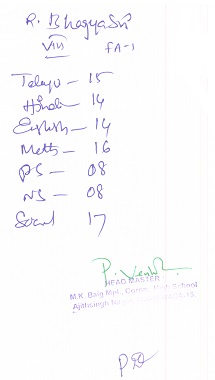 R. BhagyaSri
VIII FA-1
Telugu - 15
Hindi 14
English - 14
Maths - 16
PS - 08
NS - 08
Social 17
HEAD MASTER
M.K. Baig Mpl. Corpn. High School
Ajithsingh